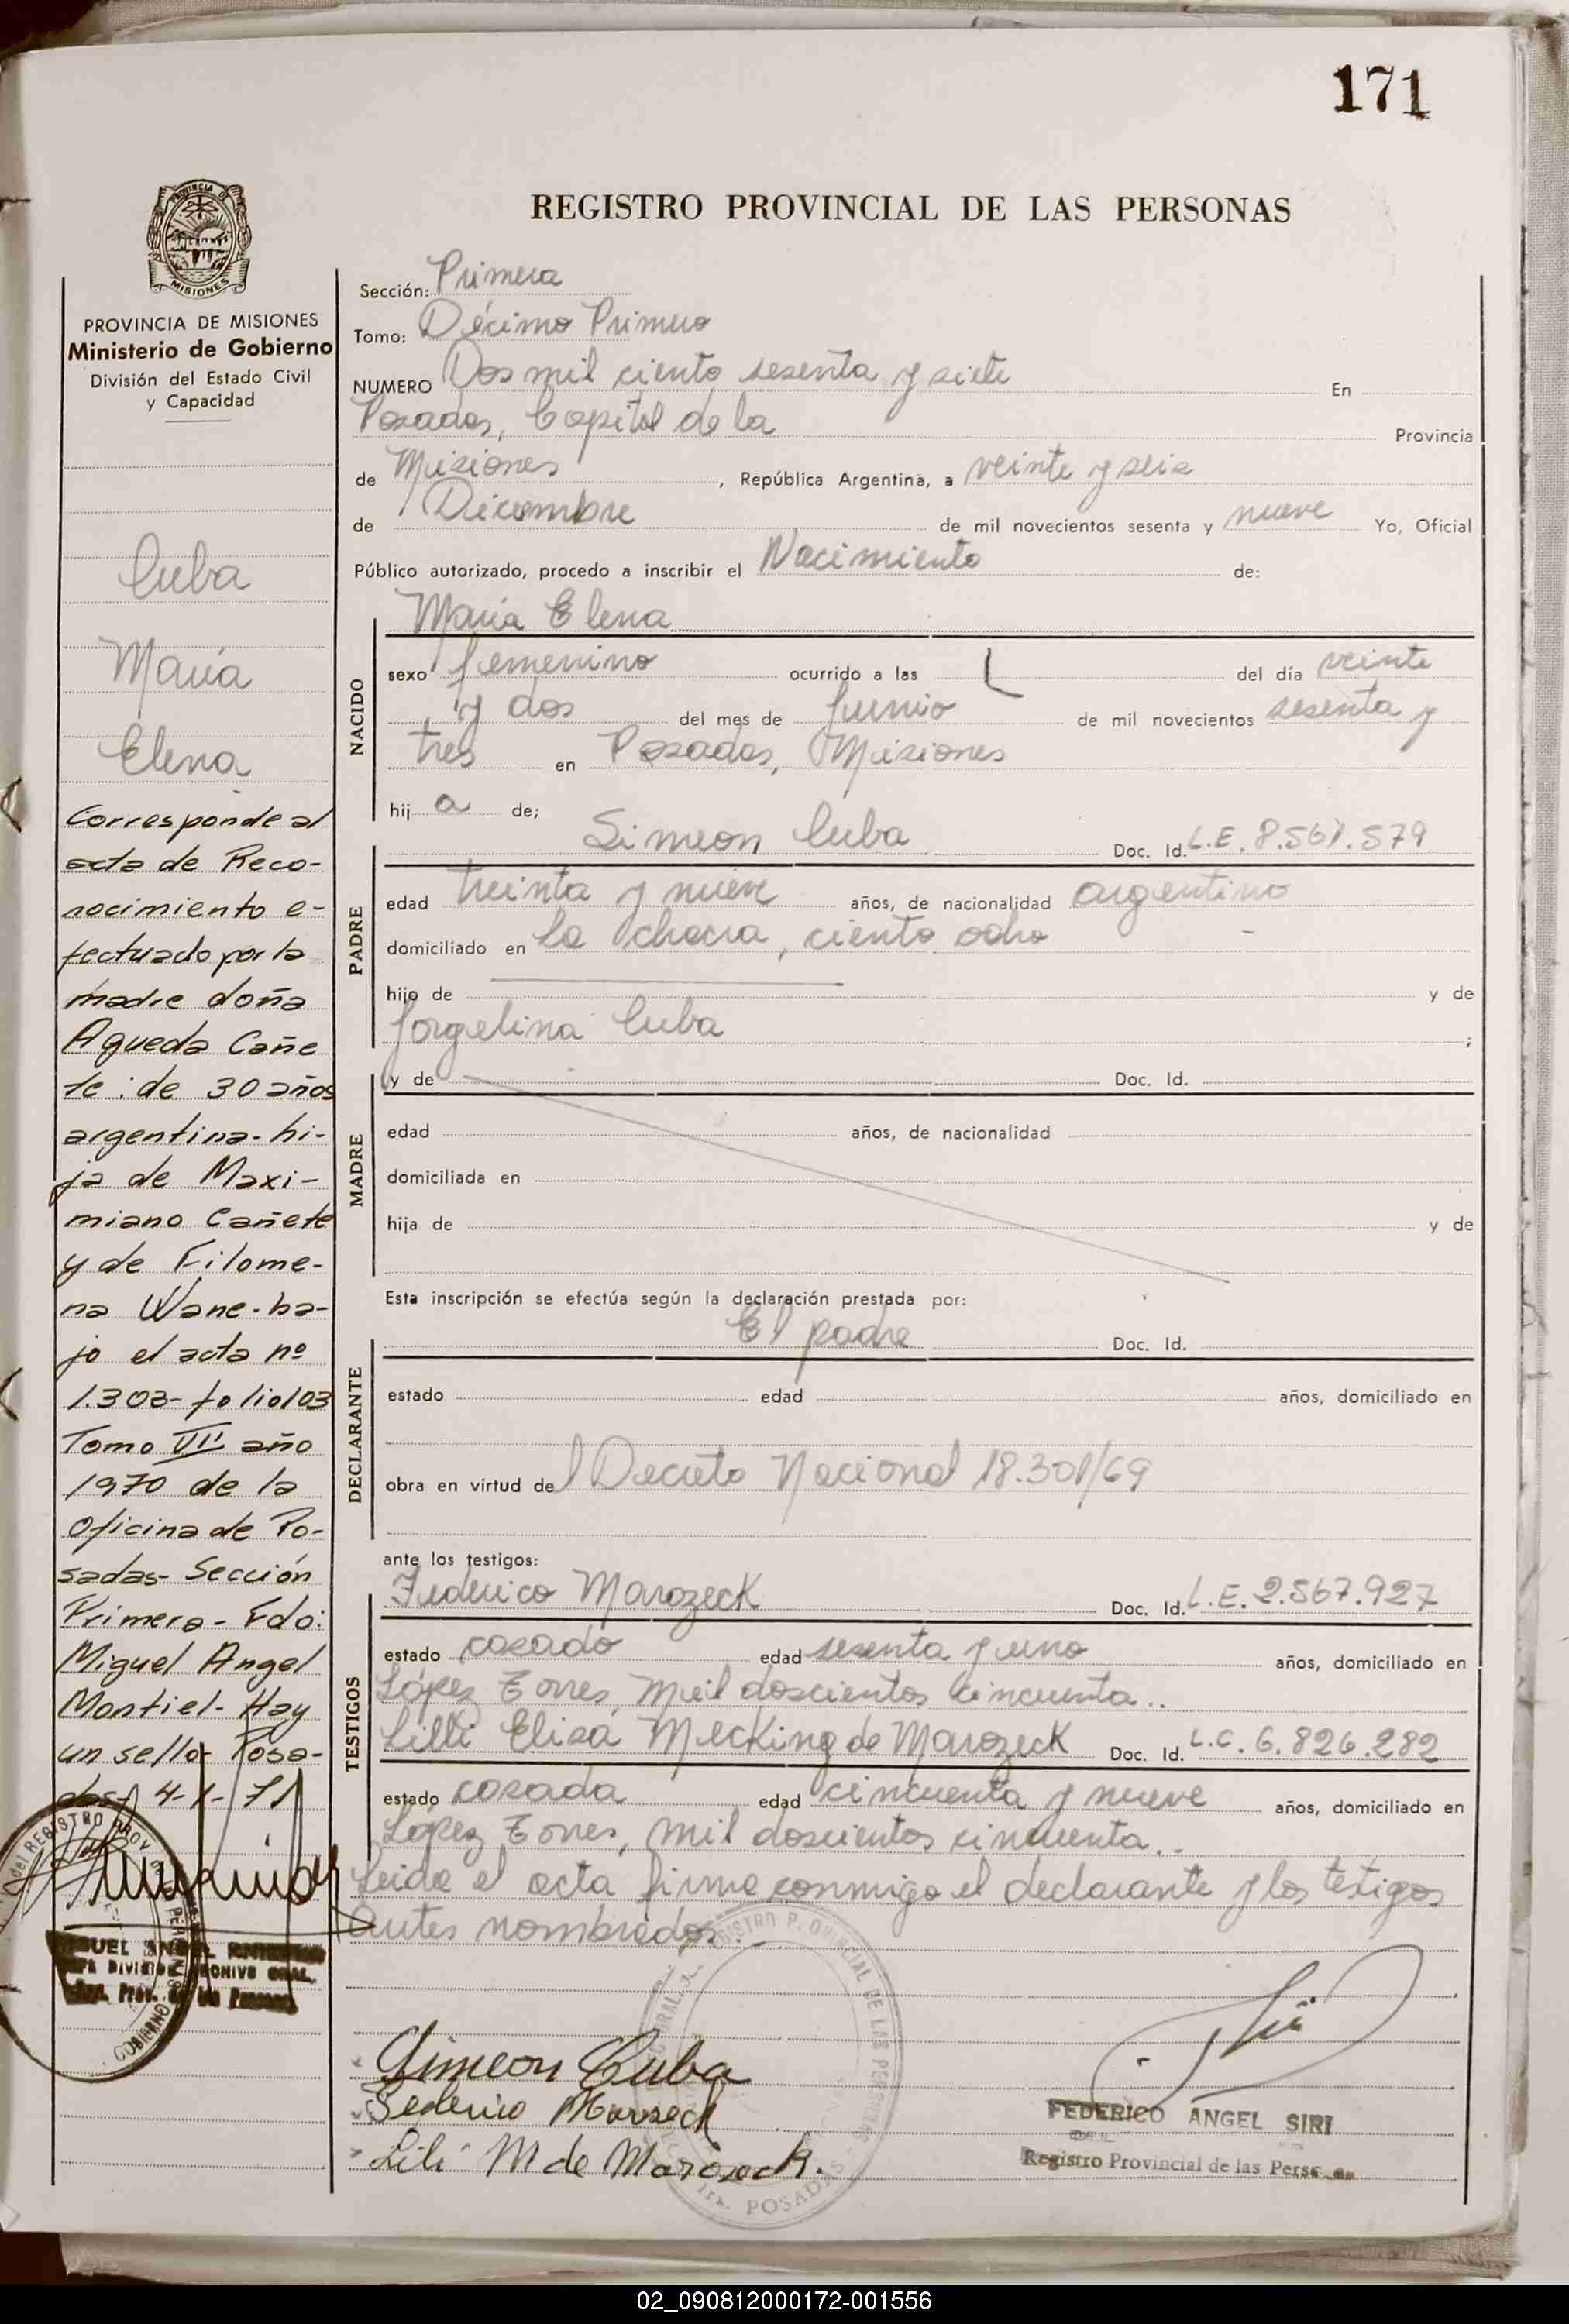 171
REGISTRO PROVINCIAL DE LAS PERSONAS
PROVINCIA DE
MISIONES
PROVINCIA DE MISIONES
Ministerio de Gobierno
División del Estado Civil
y Capacidad
Cuba
María
Elena
Corresponde al
acta de Reco-
nocimiento e-
fectuado por la
madre doña
Agueda Cañe
te: de 30 años
argentina-hi-
ja de Maxi-
miano Cañete
y de Filome-
na Wane-ba-
jo el acta nº
1.303-folio103
Tomo VII año
1970 de la
Oficina de Po-
sadas-Sección
Primera-Fdo:
Miguel Angel
Montiel-Hay
un sello Posa-
das 4-1-71
Sección: Primera
Tomo: Décimo Primero
NUMERO Dos mil ciento sesenta y siete En
Posadas, Capital de la Provincia
de Misiones, República Argentina, a veinte y seis
de Diciembre de mil novecientos sesenta y nueve Yo, Oficial
Público autorizado, procedo a inscribir el Nacimiento de:
María Elena
NACIDO
sexo femenino ocurrido a las del día veinte
y dos del mes de Junio de mil novecientos sesenta y
tres en Posadas, Misiones
hij a de;
Simeon Cuba Doc. Id. L.E. 8.561.579
PADRE
edad treinta y nueve años, de nacionalidad argentino
domiciliado en la chacra, ciento ocho
hijo de y de
Jorgelina Cuba ;
y de Doc. Id.
MADRE
edad años, de nacionalidad
domiciliada en
hija de y de
Esta inscripción se efectúa según la declaración prestada por:
El padre Doc. Id.
DECLARANTE
estado edad años, domiciliado en
obra en virtud del Decreto Nacional 18.301/69
ante los testigos:
Federico Marozeck Doc. Id. L.E. 2.567.927
TESTIGOS
estado casado edad sesenta y uno años, domiciliado en
López Torres, mil doscientos cincuenta..
Lilli Elisa Mecking de Marozeck Doc. Id. L.C. 6.826.282
estado casada edad cincuenta y nueve años, domiciliado en
López Torres, mil doscientos cincuenta..
Leida el acta firma conmigo el declarante y los testigos
antes nombrados.
Simeon Cuba
Federico Marozeck
Lili M de Marozeck.
FEDERICO ANGEL SIRI
Registro Provincial de las Perso
POSADAS
02_090812000172-001556